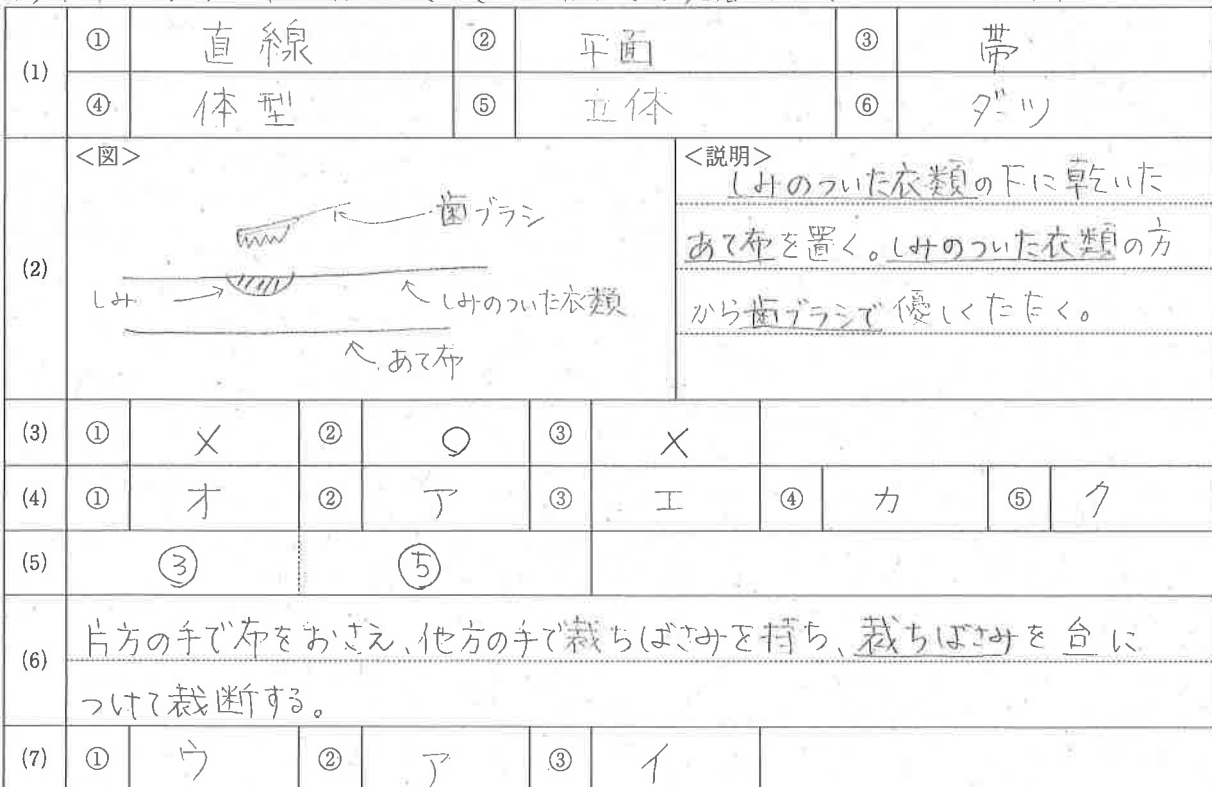 (1) ① 直線 ② 平面 ③ 帯
④ 体型 ⑤ 立体 ⑥ ダーツ
(2) <図>
歯ブラシ
しみ
しみのついた衣類
あて布
<説明>
しみのついた衣類の下に乾いた
あて布を置く。しみのついた衣類の方
から歯ブラシで優しくたたく。
(3) ① × ② ○ ③ ×
(4) ① オ ② ア ③ エ ④ カ ⑤ ク
(5) ③ ⑤
(6) 片方の手で布をおさえ、他方の手で裁ちばさみを持ち、裁ちばさみを台に
つけて裁断する。
(7) ① ウ ② ア ③ イ